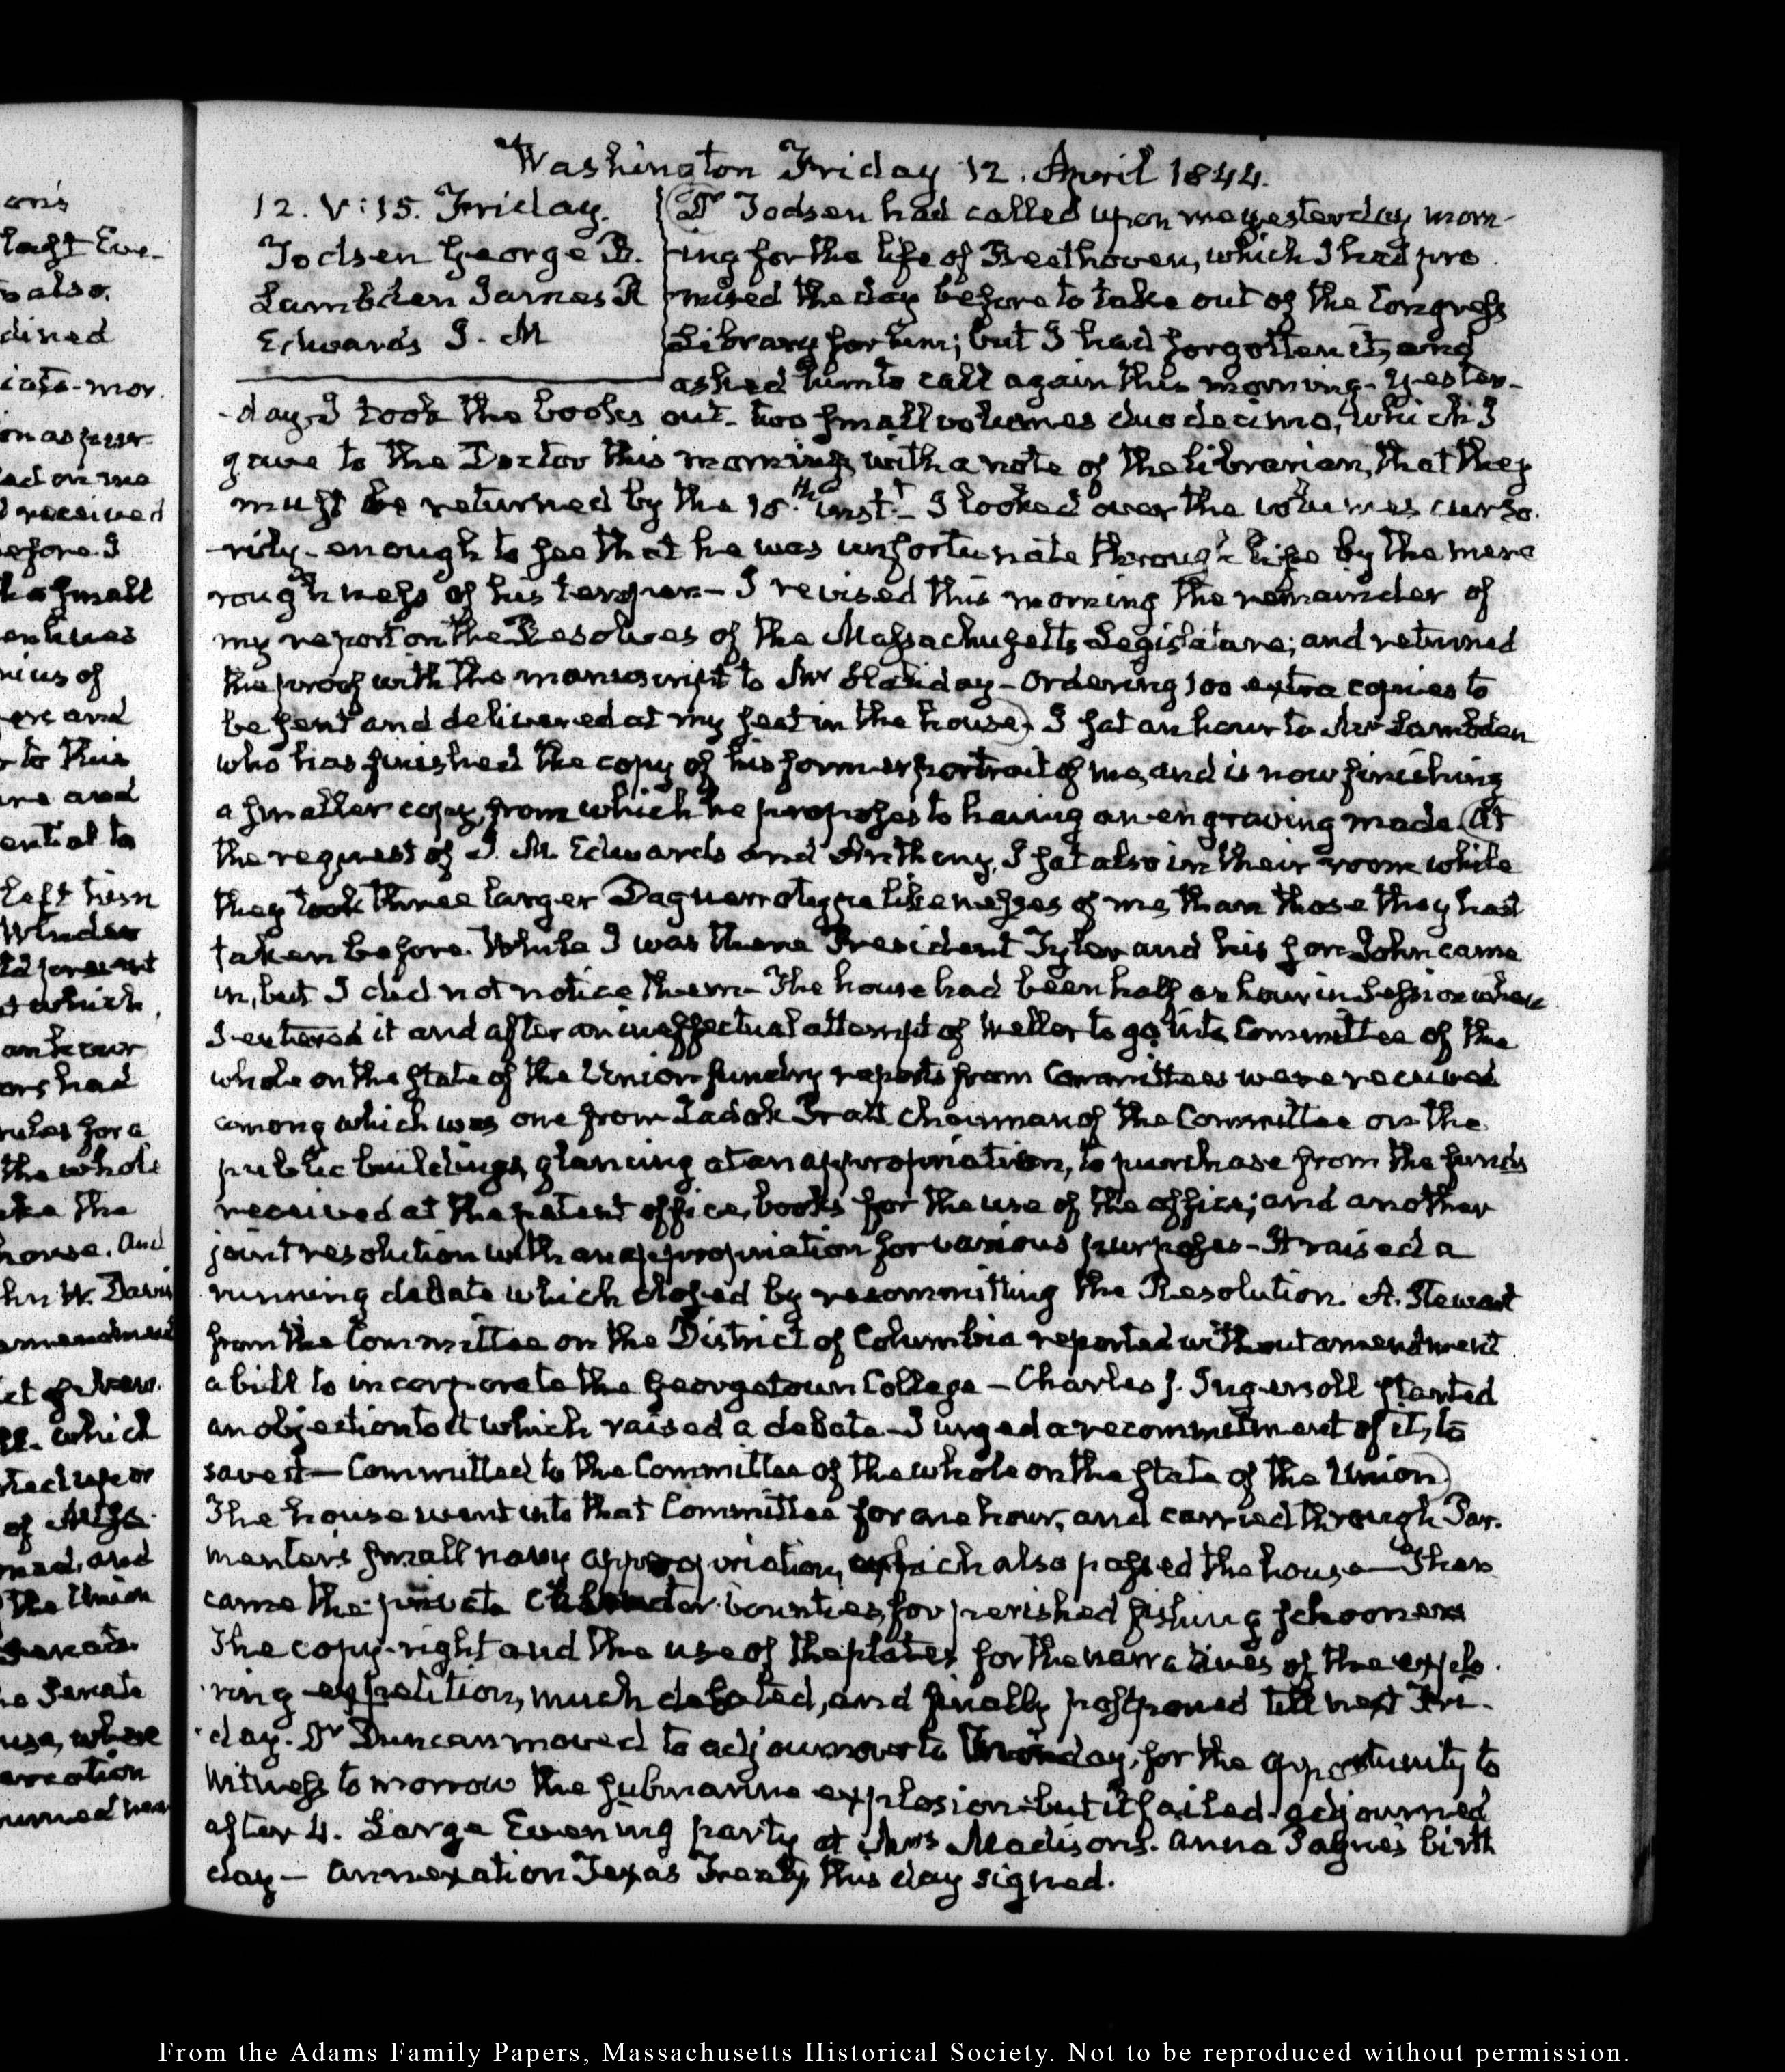 Washington Friday 12. April 1844.
12. V:15. Friday.
Todsen George B.
Lambden James R
Edwards J. M
Dr Todsen had called upon me yesterday morn-
-ing for the life of Beethoven, which I had pro
mised the day before to take out of the Congress
Library for him; but I had forgotten it, and
asked him to call again this morning. Yester-
-day I took the books out. two small volumes duodecimo, which I
gave to the Doctor this morning, with a note of the librarian, that they
must be returned by the 15.th inst.t I looked over the volumes curso.
-rily enough to see that he was unfortunate through life by the mere
roughness of his temper— I revised this morning the remainder of
my report on the Resolves of the Massachusetts Legislature; and returned
the proof with the manuscript to Mr – Ordering 100 extra copies to
be sent and delivered at my seat in the house. I sat an hour to Mr Lambden
who has finished the copy of his former portrait of me, and is now finishing
a smaller copy, from which he proposes to having an engraving made. At
the request of J. M. Edwards and Anthony, I sat also in their room while
they took three larger Daguerrotype likenesses of me than those they had
taken before. While I was there President Tyler and his son John came
in, but I did not notice them— The house had been half an hour in Session when
I entered it and after an ineffectual attempt of Weller to go into Committee of the
whole on the state of the Union sundry reports from Committees were received
among which was one from Zadok Pratt chairman of the Committee on the
public buildings, glancing at an appropriation, to purchase from the funds
received at the patent office, books for the use of the office; and another
joint resolution with an appropriation for various purposes – It raised a
running debate which closed by recommitting the Resolution. A. Stewart
from the Committee on the District of Columbia reported without amendment
a bill to incorporate the Georgetown College – Charles J. Ingersoll started
an objection to it which raised a debate – I urged a recommitment of it, to
save it – Committed to the Committee of the whole on the state of the Union
The house went into that Committee for one hour, and carried through Par.
menter's small navy appropriation, which also passed the house— Then
came the private Calendar bounties for perished fishing schooners
The copy-right and the use of the plates for the narratives of the explo.
ring expedition, much debated, and finally postponed till next Fri-
day. Dr Duncan moved to adjourn over to Monday, for the opportunity to
witness to morrow the submarine explosion: but it failed. adjourned
after 4. Large Evening party at Mrs Madison's. Anna Payne's birth
day – Annexation Texas Treaty, this day signed.
From the Adams Family Papers, Massachusetts Historical Society. Not to be reproduced without permission.